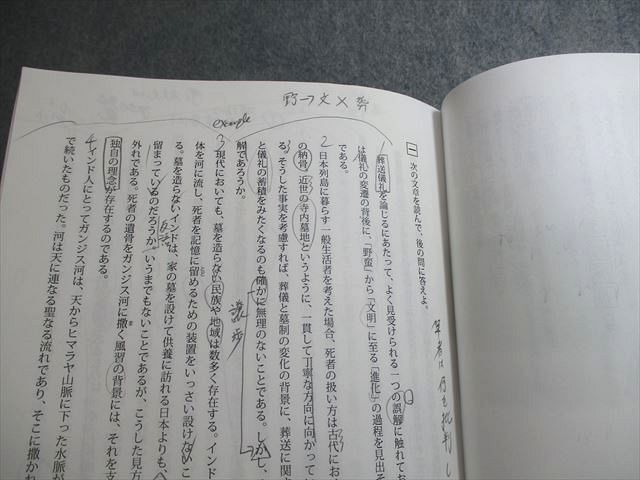 野→文×葬
example
一 次の文章を読んで、後の問に答えよ。
1 葬送儀礼を論じるにあたって、よく見受けられる一つの誤解に触れてお
は儀礼の変遷の背後に、「野蛮」から「文明」に至る「進化」の過程を見出そ
である。
2 日本列島に暮らす一般生活者を考えた場合、死者の扱い方は古代にお
の納骨、近世の寺内墓地というように、一貫して丁寧な方向に向かって
る。そうした事実を考慮すれば、葬儀と墓制の変化の背景に、葬送に関す
と儀礼の蓄積をみたくなるのも確かに無理のないことである。しかし、
解であろうか。
譲歩
3 現代においても、墓を造らない民族や地域は数多く存在する。インド
体を河に流し、死者を記憶に留めるための装置をいっさい設けないこ
る。墓を造らないインドは、家の墓を設けて供養に訪れる日本よりも、
留まっているのだろうか。いうまでもないことであるが、こうした見方
反語
外れである。死者の遺骨をガンジス河に撒く風習の背景には、それを支
ま
独自の理念が存在するのである。
4 インド人にとってガンジス河は、天からヒマラヤ山脈に下った水脈が
で続いたものだった。河は天に連なる聖なる流れであり、そこに撒かれ